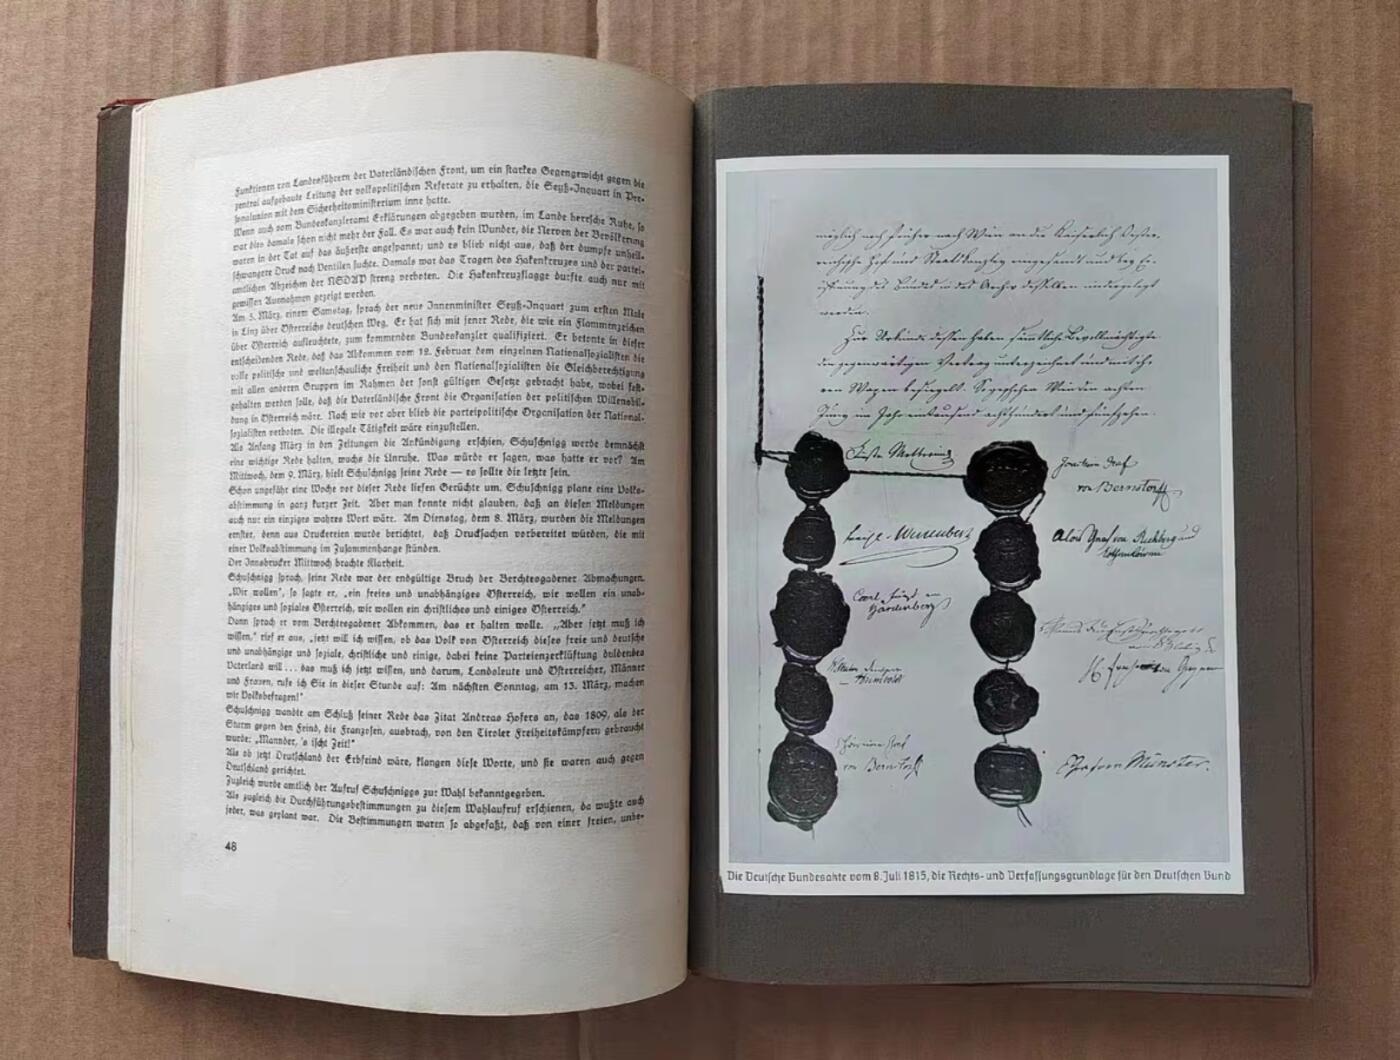 Funktionen von Landesführern der Vaterländischen Front, um ein starkes Gegengewicht gegen die
zentral aufgebaute Leitung der volkspolitischen Referate zu erhalten, die Seyß-Inquart in Per-
sonalunion mit dem Sicherheitsministerium inne hatte.
Wenn auch vom Bundeskanzleramt Erklärungen abgegeben wurden, im Lande herrsche Ruhe, so
war dies damals schon nicht mehr der Fall. Es war auch kein Wunder, die Nerven der Bevölkerung
waren in der Tat auf das äußerste angespannt; und es blieb nicht aus, daß der dumpfe unheil-
schwangere Druck nach Ventilen suchte. Damals war das Tragen des Hakenkreuzes und der partei-
amtlichen Abzeichen der NSDAP streng verboten. Die Hakenkreuzflagge durfte auch nur mit
gewissen Ausnahmen gezeigt werden.
Am 5. März, einem Samstag, sprach der neue Innenminister Seyß-Inquart zum ersten Male
in Linz über Österreichs deutschen Weg. Er hat sich mit jener Rede, die wie ein Flammenzeichen
über Österreich aufleuchtete, zum kommenden Bundeskanzler qualifiziert. Er betonte in dieser
entscheidenden Rede, daß das Abkommen vom 12. Februar dem einzelnen Nationalsozialisten die
volle politische und weltanschauliche Freiheit und den Nationalsozialisten die Gleichberechtigung
mit allen anderen Gruppen im Rahmen der sonst gültigen Gesetze gebracht habe, wobei fest-
gehalten werden solle, daß die Vaterländische Front die Organisation der politischen Willensbil-
dung in Österreich wäre. Nach wie vor aber blieb die parteipolitische Organisation der National-
sozialisten verboten. Die illegale Tätigkeit wäre einzustellen.
Als Anfang März in den Zeitungen die Ankündigung erschien, Schuschnigg werde demnächst
eine wichtige Rede halten, wuchs die Unruhe. Was würde er sagen, was hatte er vor? Am
Mittwoch, dem 9. März, hielt Schuschnigg seine Rede — es sollte die letzte sein.
Schon ungefähr eine Woche vor dieser Rede liefen Gerüchte um. Schuschnigg plane eine Volks-
abstimmung in ganz kurzer Zeit. Aber man konnte nicht glauben, daß an diesen Meldungen
auch nur ein einziges wahres Wort wäre. Am Dienstag, dem 8. März, wurden die Meldungen
ernster, denn aus Druckereien wurde berichtet, daß Drucksachen vorbereitet würden, die mit
einer Volksabstimmung im Zusammenhange stünden.
Der Innsbrucker Mittwoch brachte Klarheit.
Schuschnigg sprach, seine Rede war der endgültige Bruch der Berchtesgadener Abmachungen.
„Wir wollen", so sagte er, „ein freies und unabhängiges Österreich, wir wollen ein unab-
hängiges und soziales Österreich, wir wollen ein christliches und einiges Österreich."
Dann sprach er vom Berchtesgadener Abkommen, das er halten wolle. „Aber jetzt muß ich
wissen," rief er aus, „jetzt will ich wissen, ob das Volk von Österreich dieses freie und deutsche
und unabhängige und soziale, christliche und einige, dabei keine Parteienzerklüftung duldendes
Vaterland will ... das muß ich jetzt wissen, und darum, Landsleute und Österreicher, Männer
und Frauen, rufe ich Sie in dieser Stunde auf: Am nächsten Sonntag, am 13. März, machen
wir Volksbefragen!"
Schuschnigg wandte am Schluß seiner Rede das Zitat Andreas Hofers an, das 1809, als der
Sturm gegen den Feind, die Franzosen, ausbrach, von den Tiroler Freiheitskämpfern gebraucht
wurde: „Mannder, 's ischt Zeit!"
Als ob jetzt Deutschland der Erbfeind wäre, klangen diese Worte, und sie waren auch gegen
Deutschland gerichtet.
Zugleich wurde amtlich der Aufruf Schuschniggs zur Wahl bekanntgegeben.
Als zugleich die Durchführungsbestimmungen zu diesem Wahlaufruf erschienen, da wußte auch
jeder, was geplant war. Die Bestimmungen waren so abgefaßt, daß von einer freien, unbe-
48
möglich noch früher nach Wien an die Kaiserlich Oester-
reichische Hof und Staatskanzley eingesandt und bey Er-
öffnung des Bundes in das Archiv desselben niedergelegt
werden.
Zur Urkunde dessen haben sämmtliche Bevollmächtigte
den gegenwärtigen Vertrag unterzeichnet und mit ih-
ren Wapen besiegelt. So geschehen Wien den achten
Juny im Jahr eintausend achthundert und funfzehn.
Fürst Metternich
Joachim Graf
von Bernstorff
Wessenberg
Aloys Graf von Rechberg und
Rothenlöwen
Carl Fürst von
Hardenberg
Humboldt
Christian Graf
von Bernstorff
Graf von Münster.
Die Deutsche Bundesakte vom 8. Juli 1815, die Rechts- und Verfassungsgrundlage für den Deutschen Bund